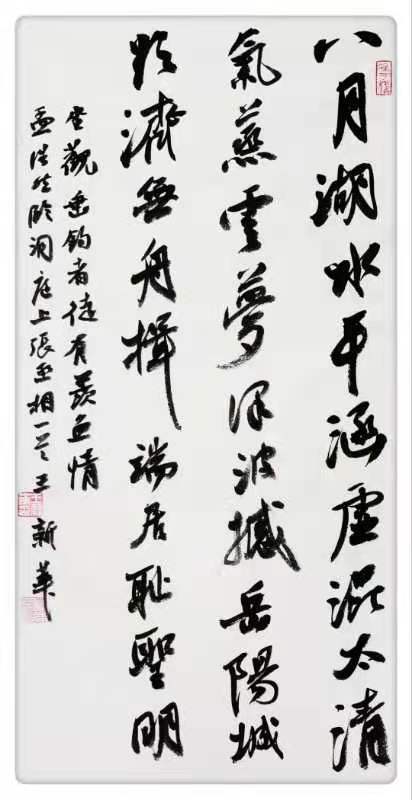 八月湖水平涵虛混太清
氣蒸雲夢澤波撼岳陽城
欲濟無舟楫端居耻聖明
坐觀垂釣者徒有羨魚情
孟浩然臨洞庭上張丞相一首王新華